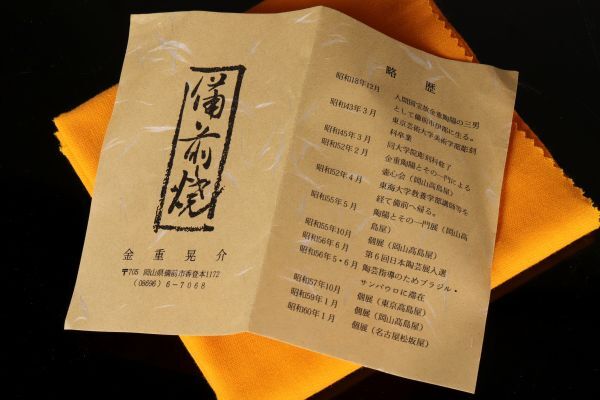 備前焼
金重晃介
〒705 岡山県備前市香登本1172
(08696) 6-7068
略歴
昭和18年12月 人間国宝故金重陶陽の三男
として備前市伊部に生る。
昭和43年3月 東京芸術大学美術学部彫刻
科卒業
昭和45年3月 同大学院彫刻科修了
昭和52年2月 金重陶陽とその一門による
壷心会(岡山高島屋)
昭和52年4月 東海大学教養学部講師等を
経て備前へ帰る。
昭和55年5月 陶陽とその一門展(岡山高
島屋)
昭和55年10月 個展(岡山高島屋)
昭和56年6月 第6回日本陶芸展入選
昭和56年5・6月 陶芸指導のためブラジル・
サンパウロに滞在
昭和57年10月 個展(東京高島屋)
昭和59年1月 個展(岡山高島屋)
昭和60年1月 個展(名古屋松坂屋)